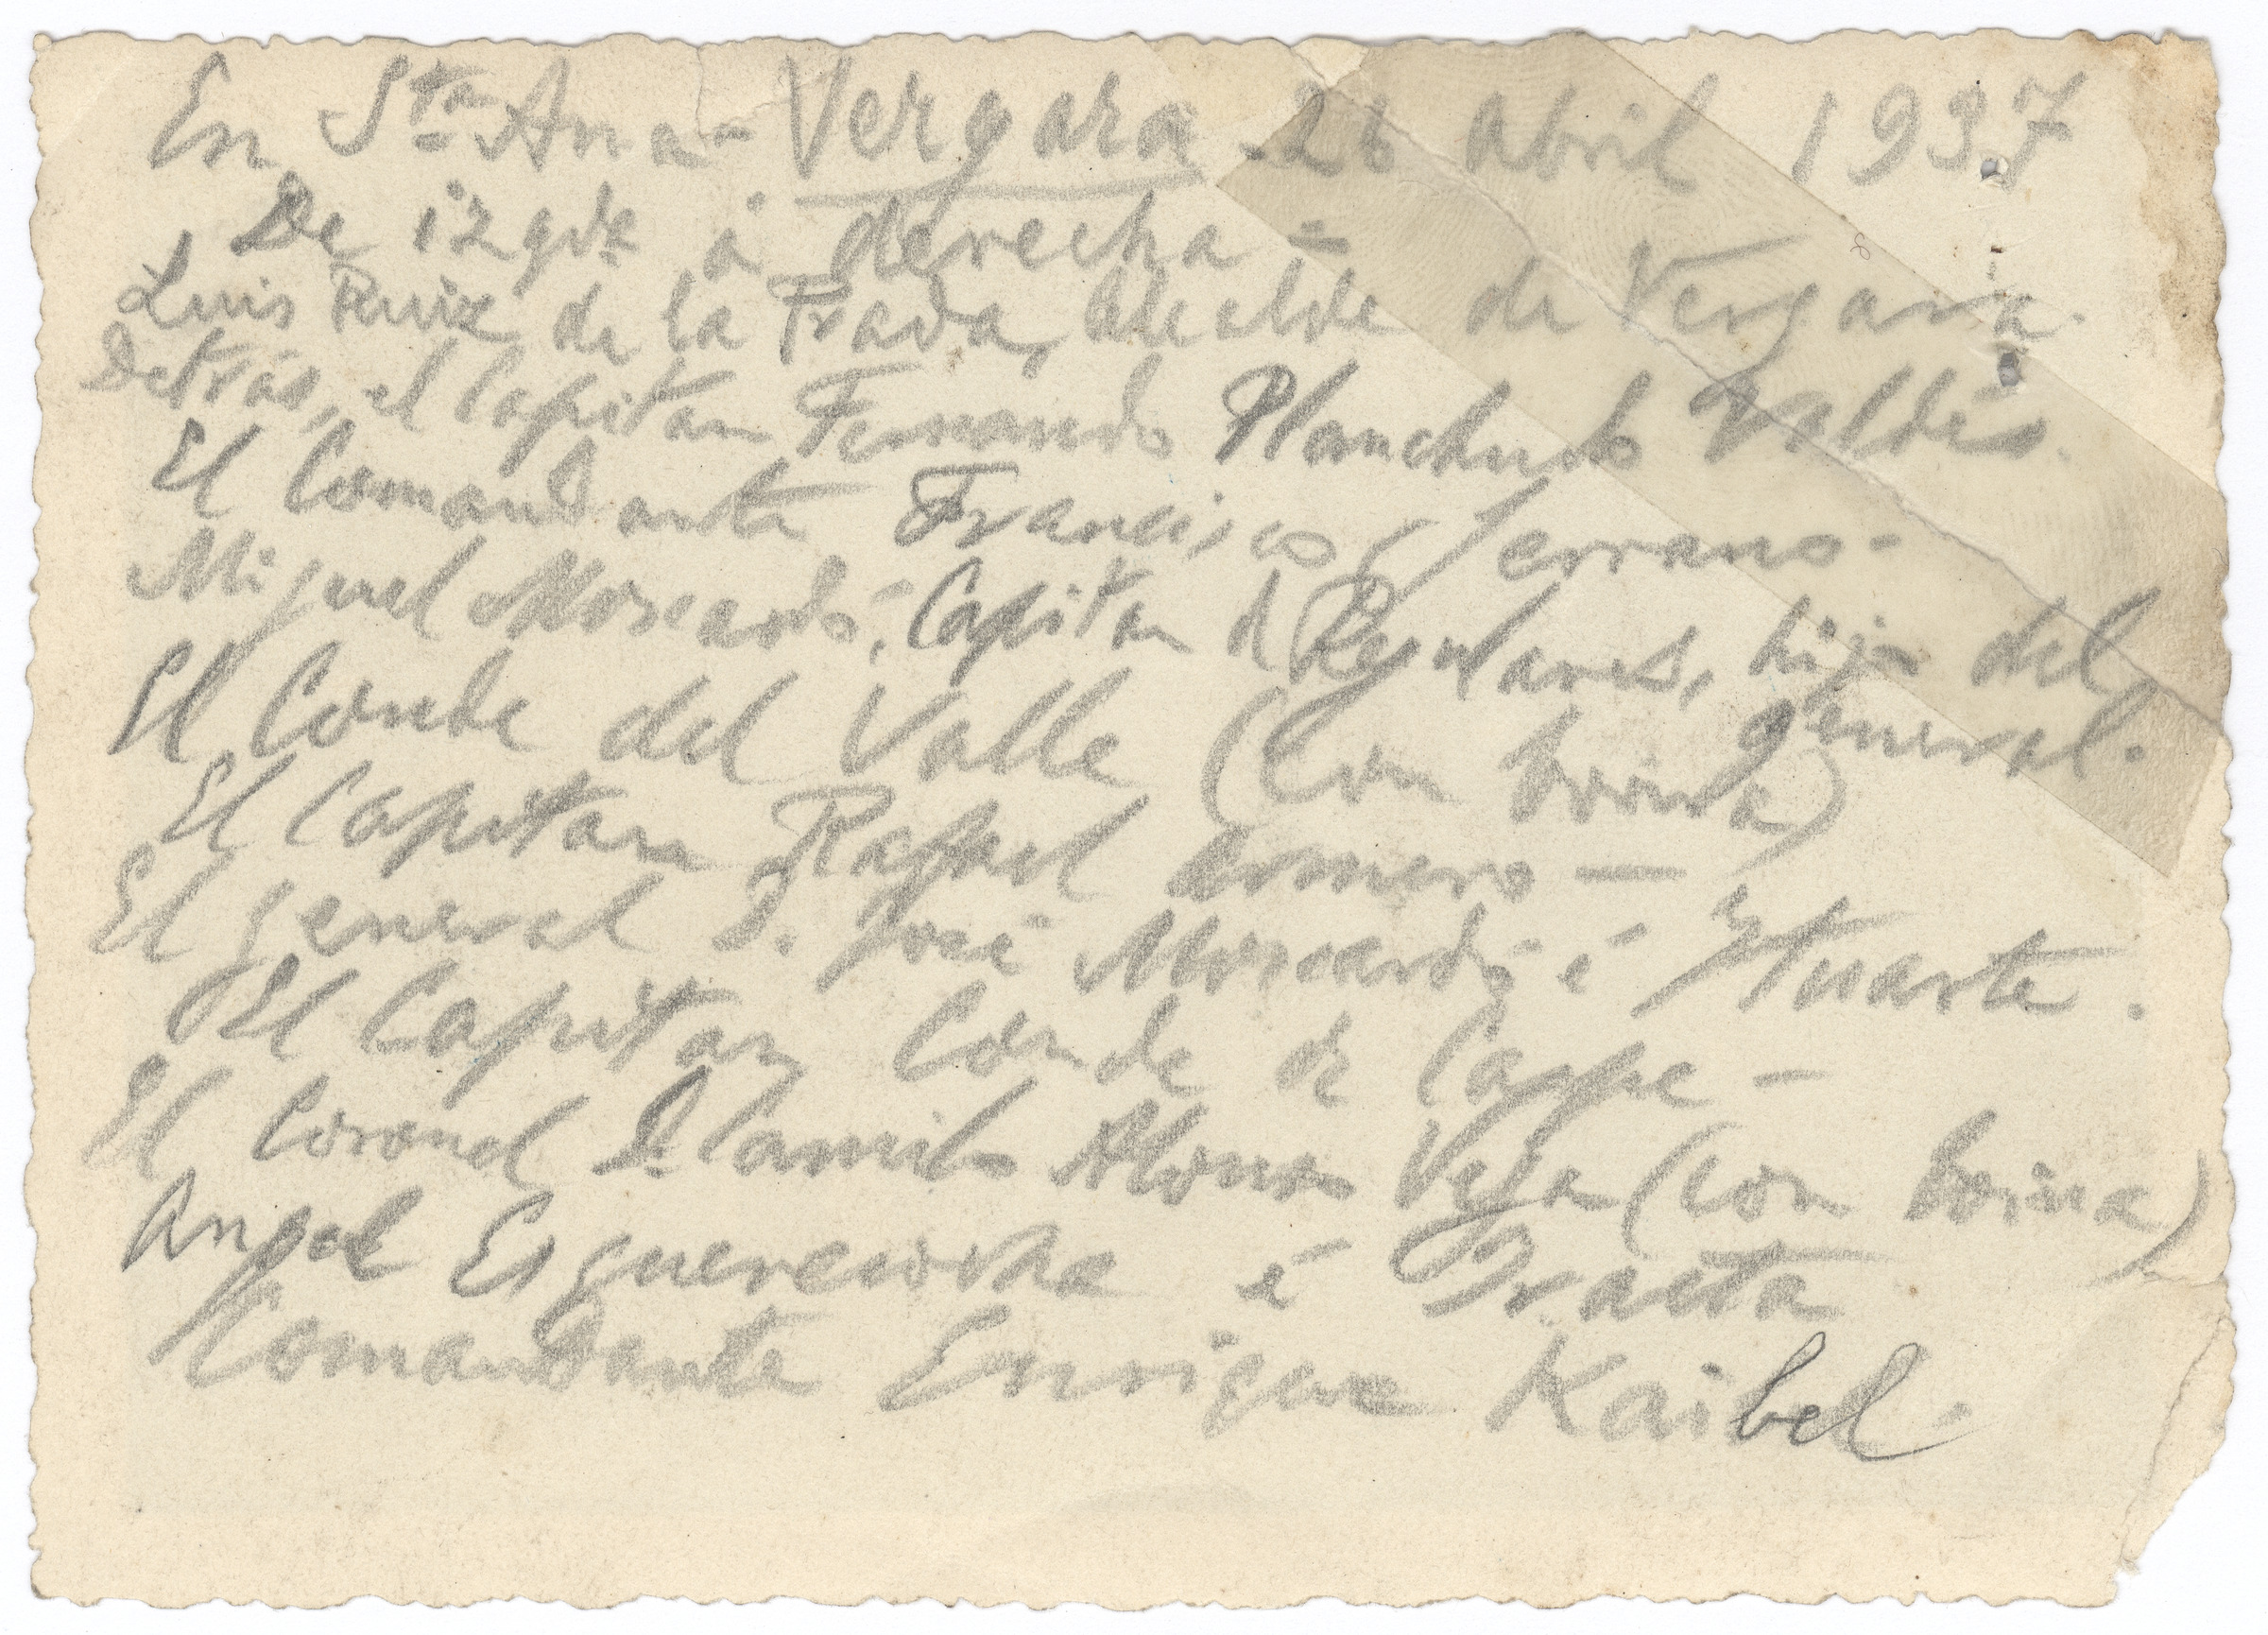 En Sta Ana - Vergara - 26 abril 1937
De izqda a derecha -
Luis Ruiz de la Prada, Alcalde de Vergara.
Detrás, el Capitan Fernando Planchuelo Valdés.
El Comandante Francisco Serrano -
Miguel Moscardó, Capitan d Regulares, hijo del
general.
El Conde del Valle (con boina)
El Capitan Rafael Romero —
El general D. José Moscardó é Ituarte.
El Capitan Conde de Caspe -
El Coronel D. Camilo Alonso Vega (con boina)
Angel é Iraeta
Comandante Enrique Kaibel.